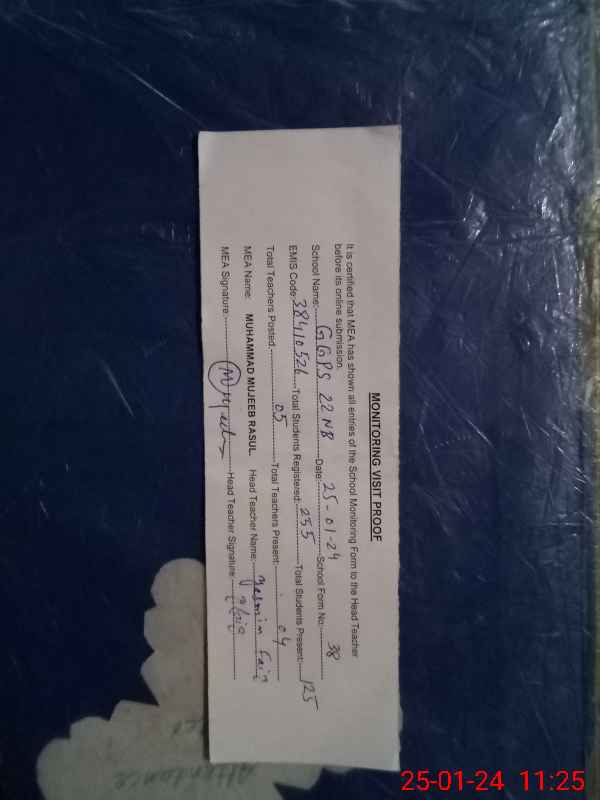 MONITORING VISIT PROOF
It is certified that MEA has shown all entries of the School Monitoring Form to the Head Teacher
before its online submission.
School Name: GGPS 22 NB Date: 25-01-24 School Form No: 38
EMIS Code: 38410526 Total Students Registered: 255 Total Students Present: 125
Total Teachers Posted: 05 Total Teachers Present: 04
MEA Name: MUHAMMAD MUJEEB RASUL Head Teacher Name: Yasmin
MEA Signature: Mujeeb Head Teacher Signature:
Attendance
25-01-24 11:25